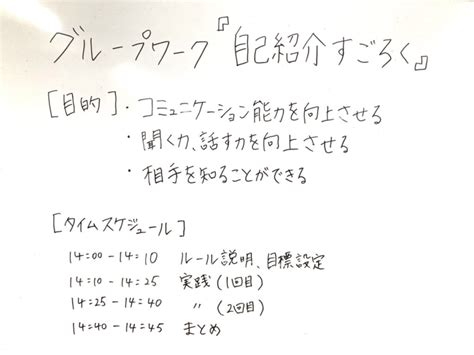 グループワーク『自己紹介すごろく』
[目的]・コミュニケーション能力を向上させる
・聞く力、話す力を向上させる
・相手を知ることができる
[タイムスケジュール]
14:00-14:10 ルール説明、目標設定
14:10-14:25 実践(1回目)
14:25-14:40 〃 (2回目)
14:40-14:45 まとめ